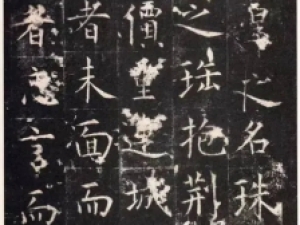 之名珠
之抱荆
價重連城
者未面而
者忘言而